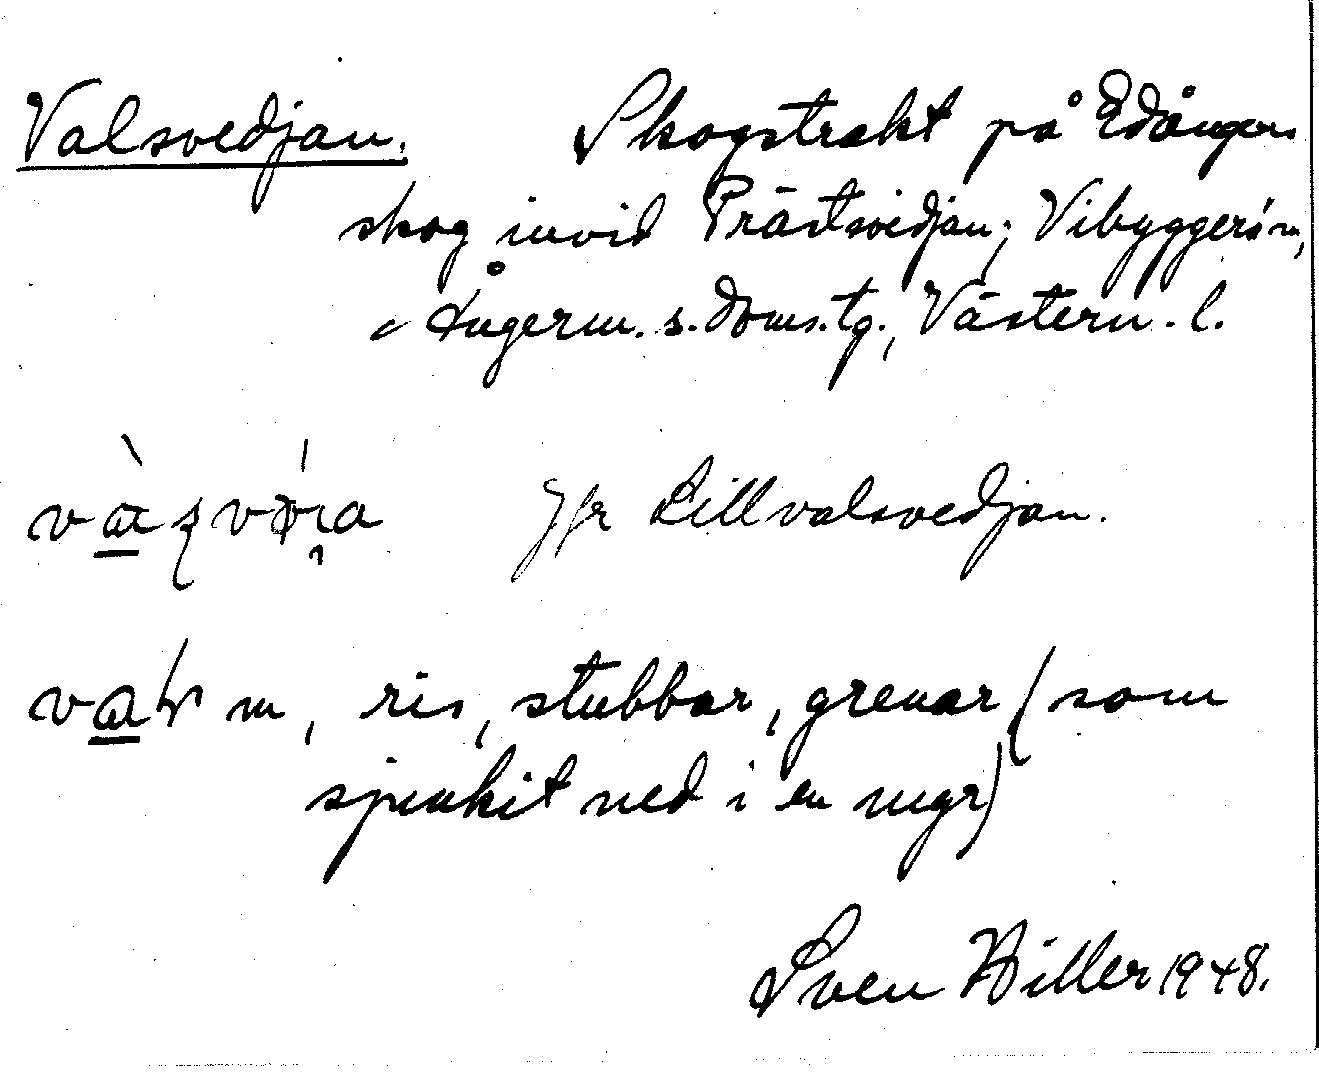 Valsvedjan. Skogstrakt på Edångers
skog invid Prästsvedjan; Vibyggerå sn,
Ångerm. s. doms. tg., Västern. l.
Jfr Lillvalsvedjan.
m, ris, stubbar, grenar (som
sjunkit ned i en myr)
Sven Hiller 1948.